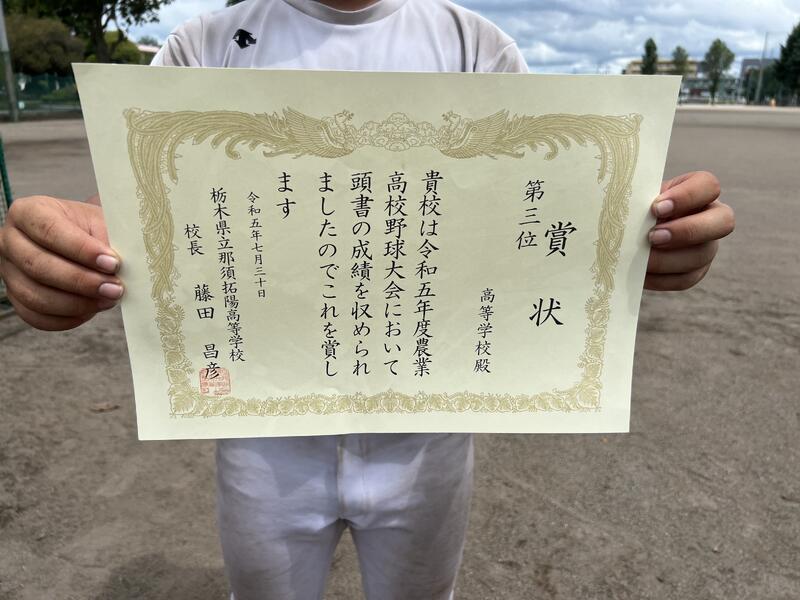 賞状
第三位
高等学校殿
貴校は令和五年度農業
高校野球大会において
頭書の成績を収められ
ましたのでこれを賞し
ます
令和五年七月三十日
栃木県立那須拓陽高等学校
校長 藤田 昌彦